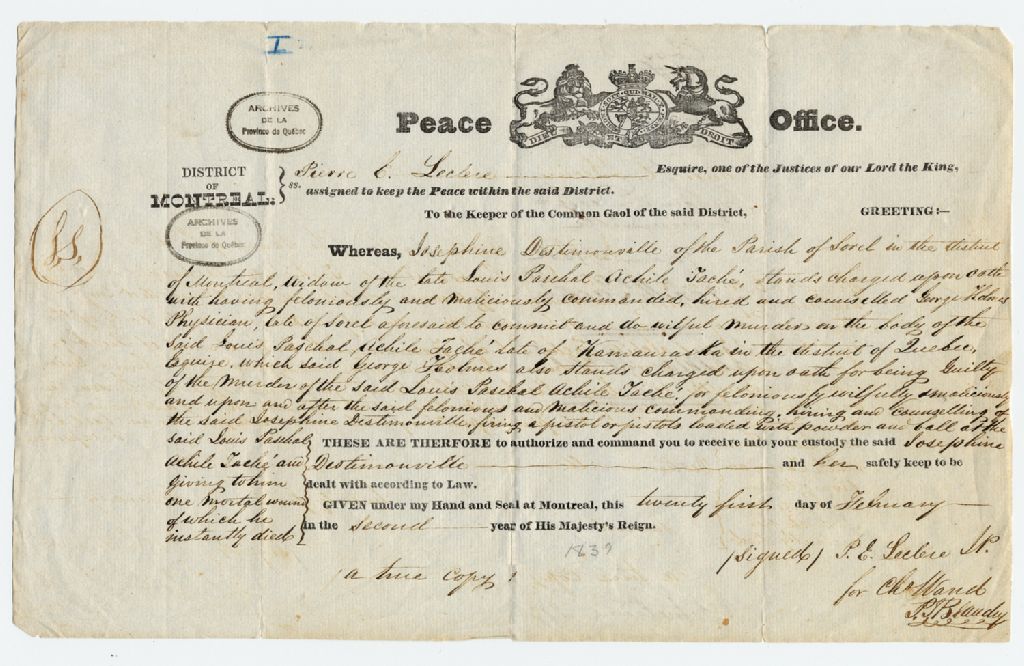 I
ARCHIVES
DE LA
Province de Québec
Peace Office.
DIEU ET DROIT
DISTRICT
OF
MONTREAL.
ss.
Pierre E. Leclere Esquire, one of the Justices of our Lord the King,
assigned to keep the Peace within the said District.
To the Keeper of the Common Gaol of the said District, GREETING:—
ARCHIVES
DE LA
Province de Québec
L.S.
Whereas, Josephine Destimonville of the Parish of Sorel in the district
of Montreal, Widow of the late Louis Paschal Achile Taché, stands charged upon oath
with having feloniously and maliciously commanded, hired and counselled George Holmes
Physician, late of Sorel aforesaid to commit and do wilful murder on the body of the
said Louis Paschal Achile Taché late of Kamauraska in the district of Quebec,
Esquire, which said George Holmes also stands charged upon oath for being Guilty
of the Murder of the said Louis Paschal Achile Taché, for feloniously wilfully & maliciously
and upon and after the said felonious and Malicious commanding, hiring and counselling of
the said Josephine Destimonville, firing a pistol or pistols loaded with powder and ball at the
said Louis Paschal
Achile Taché and
giving to him
one mortal wound
of which he
instantly died
THESE ARE THERFORE to authorize and command you to receive into your custody the said Josephine
Destimonville and her safely keep to be
dealt with according to Law.
GIVEN under my Hand and Seal at Montreal, this twenty first day of February
in the second year of His Majesty's Reign.
1839
(signed) P. E. Leclere JP.
a true copy
for Chs Wand